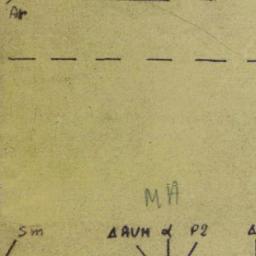 Ar
MA
Sm ΔAVH α P2 Δ